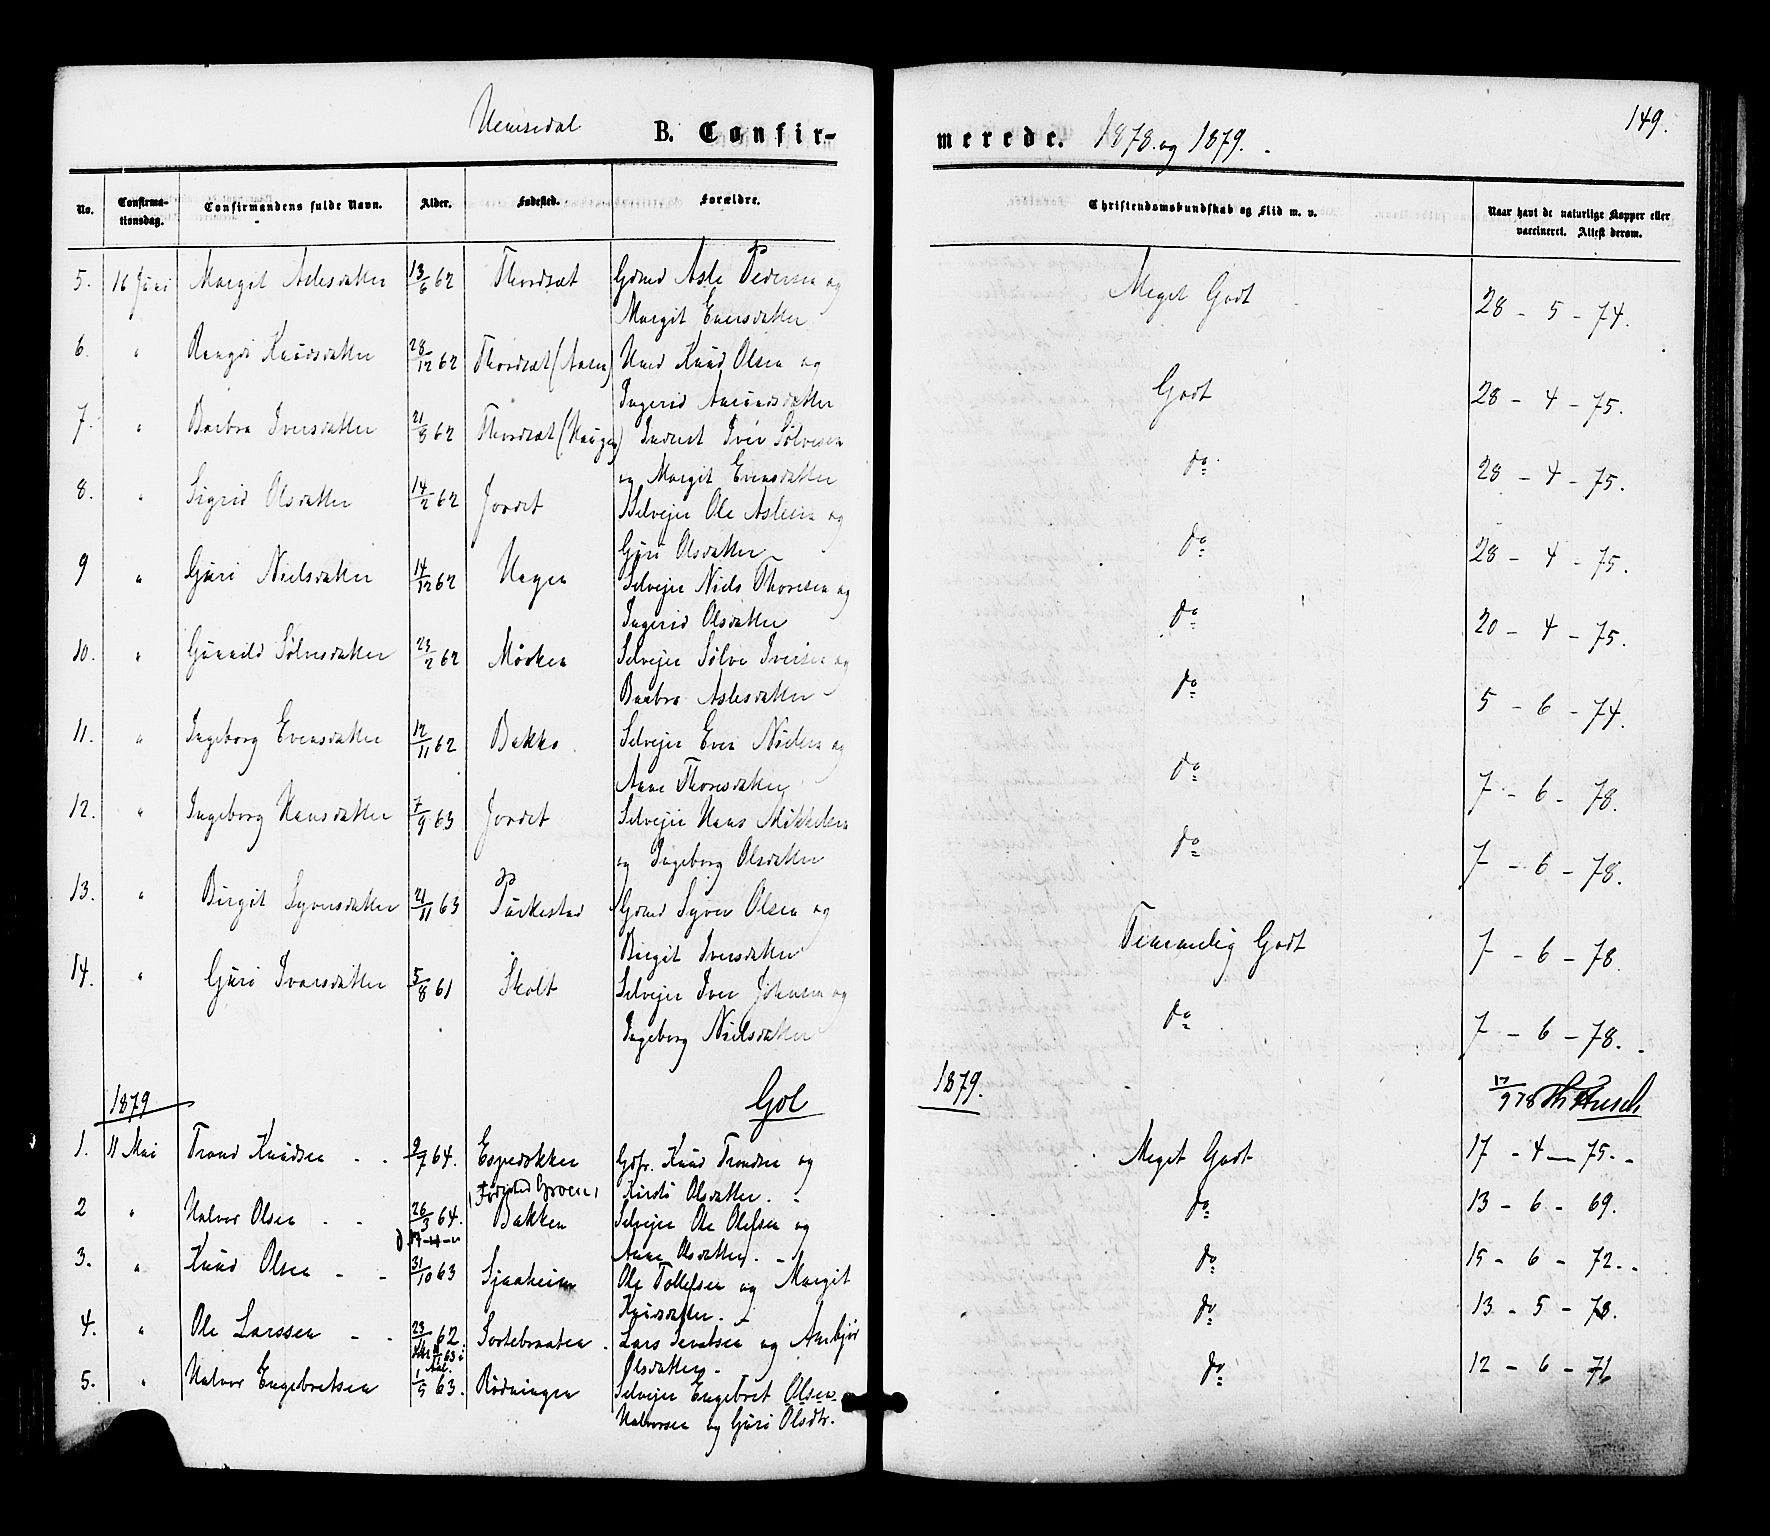 Hemsedal B. Confir-
merede. 1878. og 1879. 149.
No. Confirma-tionsdag. Confirmandens fulde Navn. Alder. Fødested. Forældre. Christendomskundskab og Flid m. v. Naar havt de naturlige Kopper eller vaccineret. Attest derom.
5. 16 Juni Margit Aslesdatter 13/6 62 Thordsæt Gdmd Asle Pedersen og Meget Godt 28 - 5 - 74.
Margit Evensdatter
6. " Knudsdatter 28/12 62 Thordsæt (Aasen) Hmd Knud Olsen og Godt 28 - 4 - 75.
Ingerid Amundsdatter
7. " Barbra Iversdatter 21/3 62 Thordsæt (Haugen) Inderst Iver Sølvesen do 28 - 4 - 75.
og Margit Evensdatter
8. " Sigrid Olsdatter 14/2 62 Jordet Selvejer Ole Aslesen og do 28 - 4 - 75.
Guri Olsdatter
9 " Guri Nielsdatter 14/12 62 Hagen Selvejer Niels Thoresen og do 20 - 4 - 75.
Ingerid Olsdatter
10. " Gunnild Sølvesdatter 23/2 62 Mørken Selvejer Sølve Iversen og do 5 - 6 - 74.
Barbra Aslesdatter
11. " Ingeborg Evensdatter 12/11 62 Bakko Selvejer Even Nielsen og do 7 - 6 - 78.
Anne Thoresdatter
12. " Ingeborg Hansdatter 7/9 63 Jordet Selvejer Hans Mikkelsen do 7 - 6 - 78.
og Ingeborg Olsdatter
13. " Birgit Syversdatter 21/11 63 Purkestad Gdmd Syver Olsen og Temmelig Godt 7 - 6 - 78.
Birgit Iversdatter
14. " Guri Iversdatter 5/8 61 Skolt Selvejer Iver Johnsen og do 7 - 6 - 78.
Ingeborg Nielsdatter
1879 Gol 1879. 17/9 78
1. 11 Mai Trond Knudsen 9/7 64. Espedokken Gdbr. Knud Trondsen og Meget Godt 17 - 4 - 75.
(Fødested Groen) Kirsti Olsdatter.
2 " Halvor Olsen 26/3 64. Bakken Selvejer Ole Olsen og do 13 - 6 - 69.
Anne Olsdatter.
3. " Knud Olsen 31/10 63 Sjaaheim Ole Tollefsen og Margit do 15 - 6 - 72.
Knudsdatter.
4. " Ole Larssen 23/ 62 Sortebraaten. Lars og Ambjør do 13 - 5 - 73.
Olsdatter.
5. " Halvor Engebretsen 1/5 63. Rødningen Selvejer Engebret Olsen do 12 - 6 - 71
Halvorsen og Guri Olsdtr.